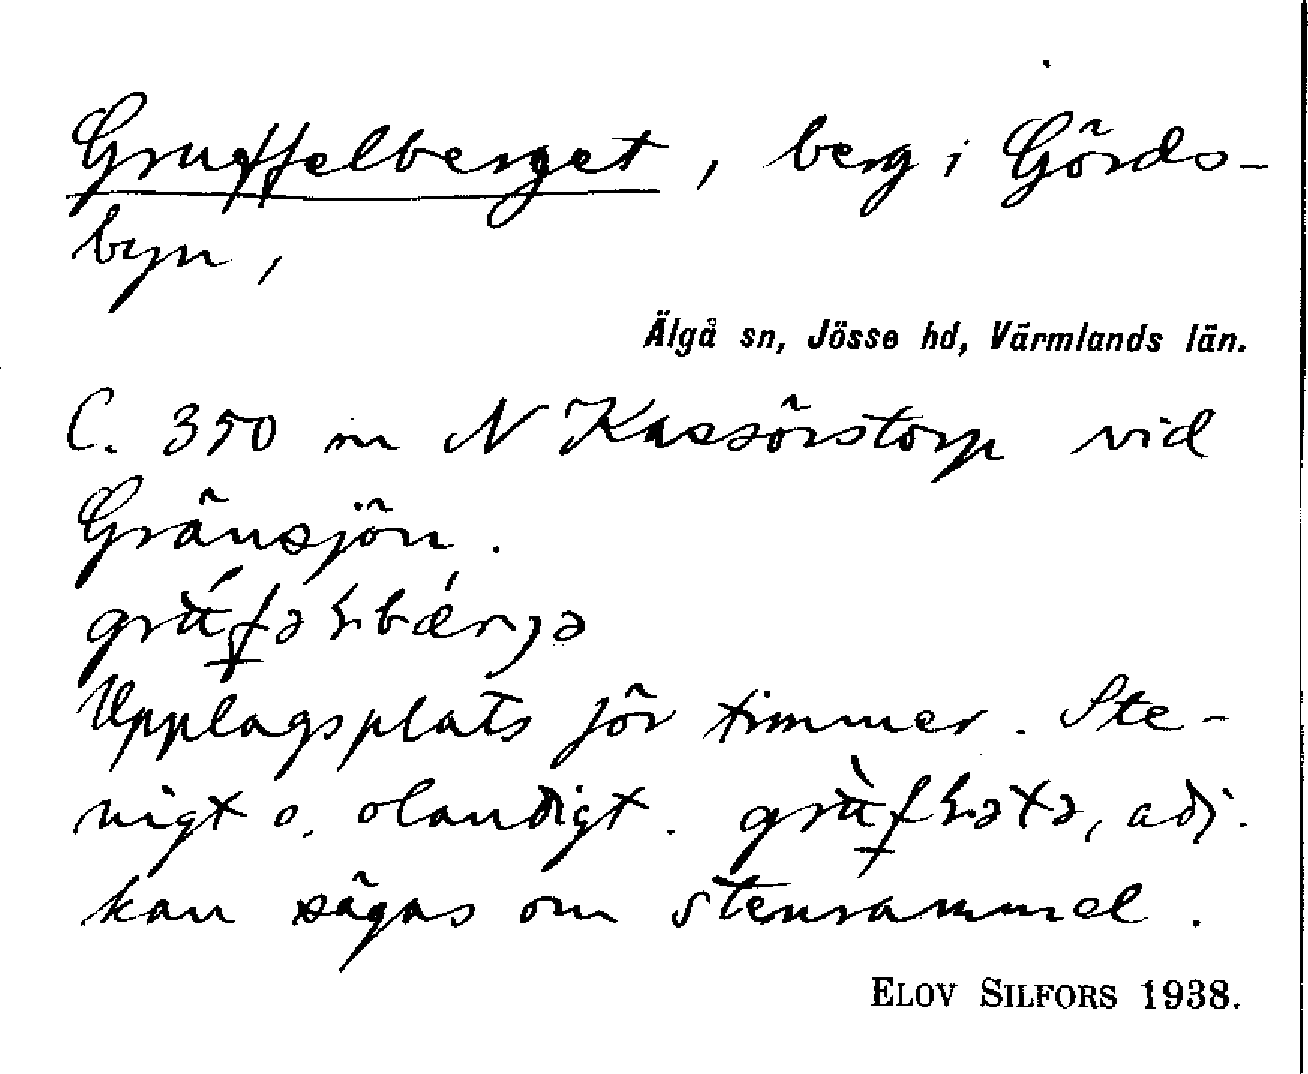 Gruffelberget, berg i Görds-
byn,
Älgå sn, Jösse hd, Värmlands län.
C. 350 m N Kassörstorp vid
Gränsjön.
Upplagsplats för timmer. Ste-
nigt o. olandigt. adj.
kan sägas om stensammel.
ELOV SILFORS 1938.